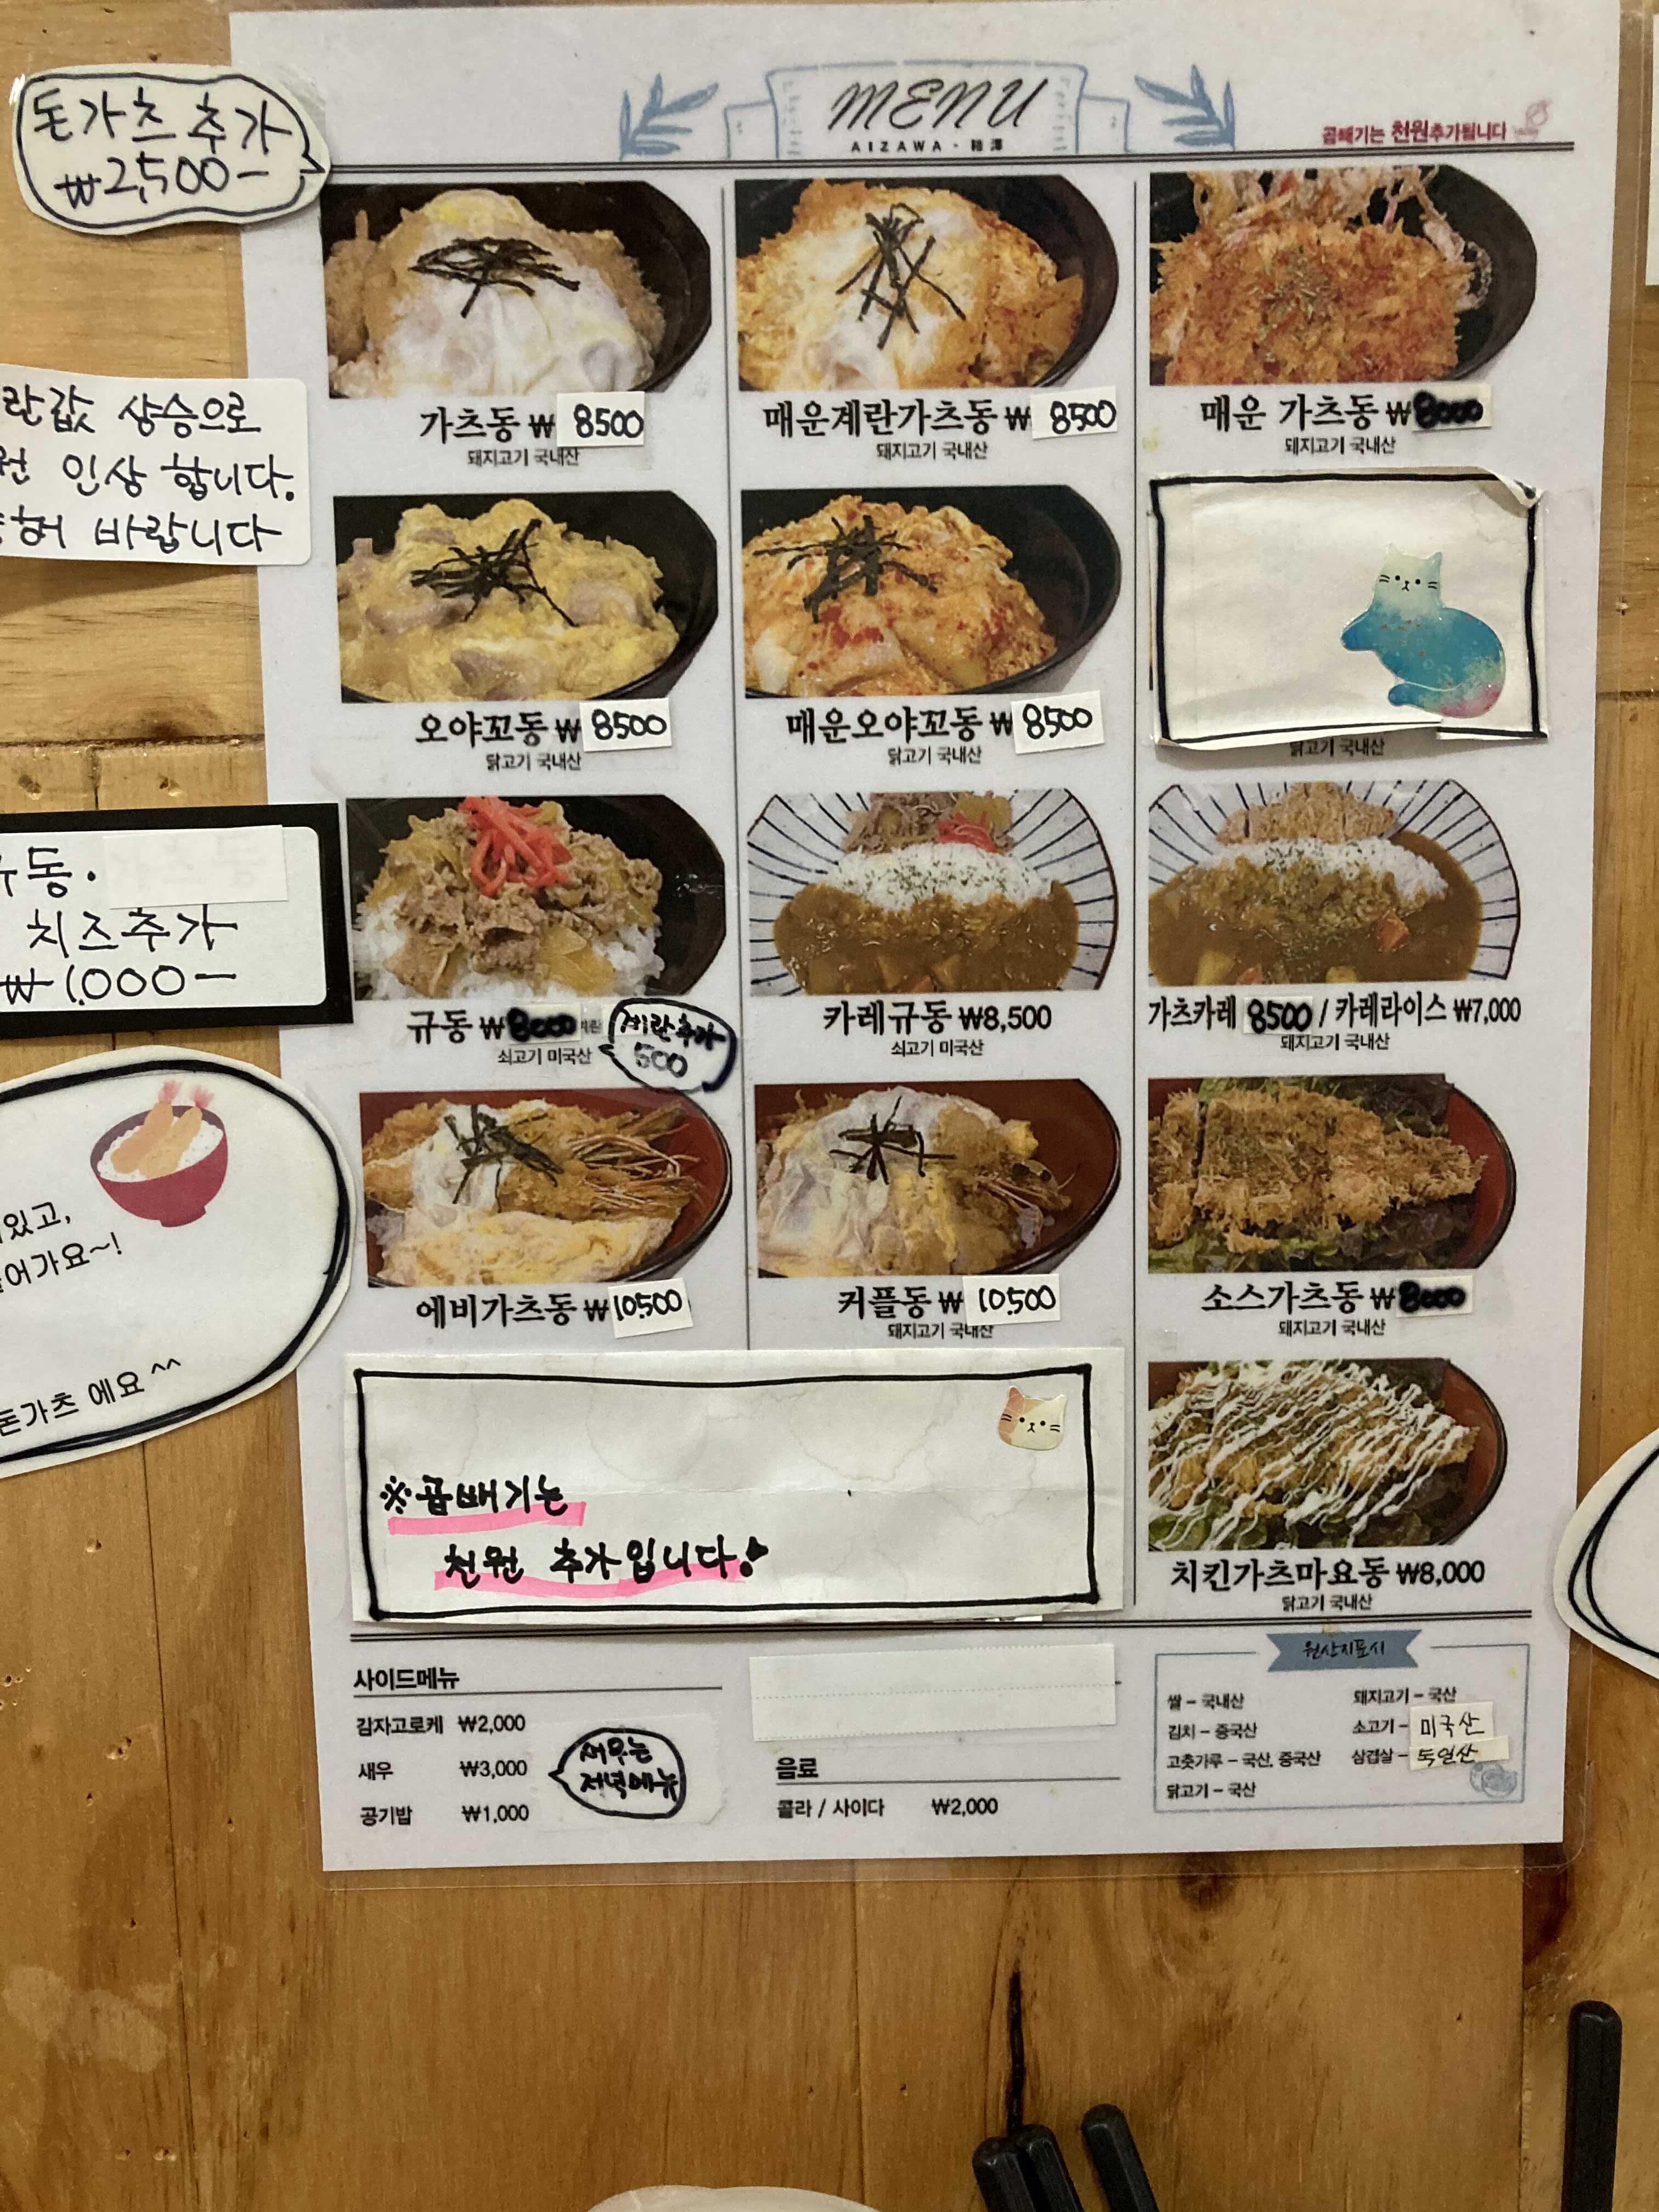 돈가츠 추가
₩2,500-
MENU
AIZAWA · 相澤
곱빼기는 천원추가됩니다
가츠동 ₩ 8500
돼지고기 국내산
매운계란가츠동 ₩ 8500
돼지고기 국내산
매운 가츠동 ₩8000
돼지고기 국내산
란값 상승으로
원 인상 합니다.
해 바랍니다
오야꼬동 ₩ 8500
닭고기 국내산
매운오야꼬동 ₩ 8500
닭고기 국내산
닭고기 국내산
동.
치즈추가
₩1,000-
규동 ₩8000
쇠고기 미국산
계란추가
500
카레규동 ₩8,500
쇠고기 미국산
가츠카레 8500 / 카레라이스 ₩7,000
돼지고기 국내산
있고,
어가요~!
돈가츠 에요 ^^
에비가츠동 ₩10,500
커플동 ₩ 10,500
돼지고기 국내산
소스가츠동 ₩8000
돼지고기 국내산
※곱빼기는
천원 추가입니다!
치킨가츠마요동 ₩8,000
닭고기 국내산
사이드메뉴
김자고로케 ₩2,000
새우 ₩3,000
공기밥 ₩1,000
새우는
저녁메뉴
음료
콜라 / 사이다 ₩2,000
원산지표시
쌀 - 국내산
김치 - 중국산
고춧가루 - 국산, 중국산
닭고기 - 국산
돼지고기 - 국산
소고기 - 미국산
삼겹살 - 독일산